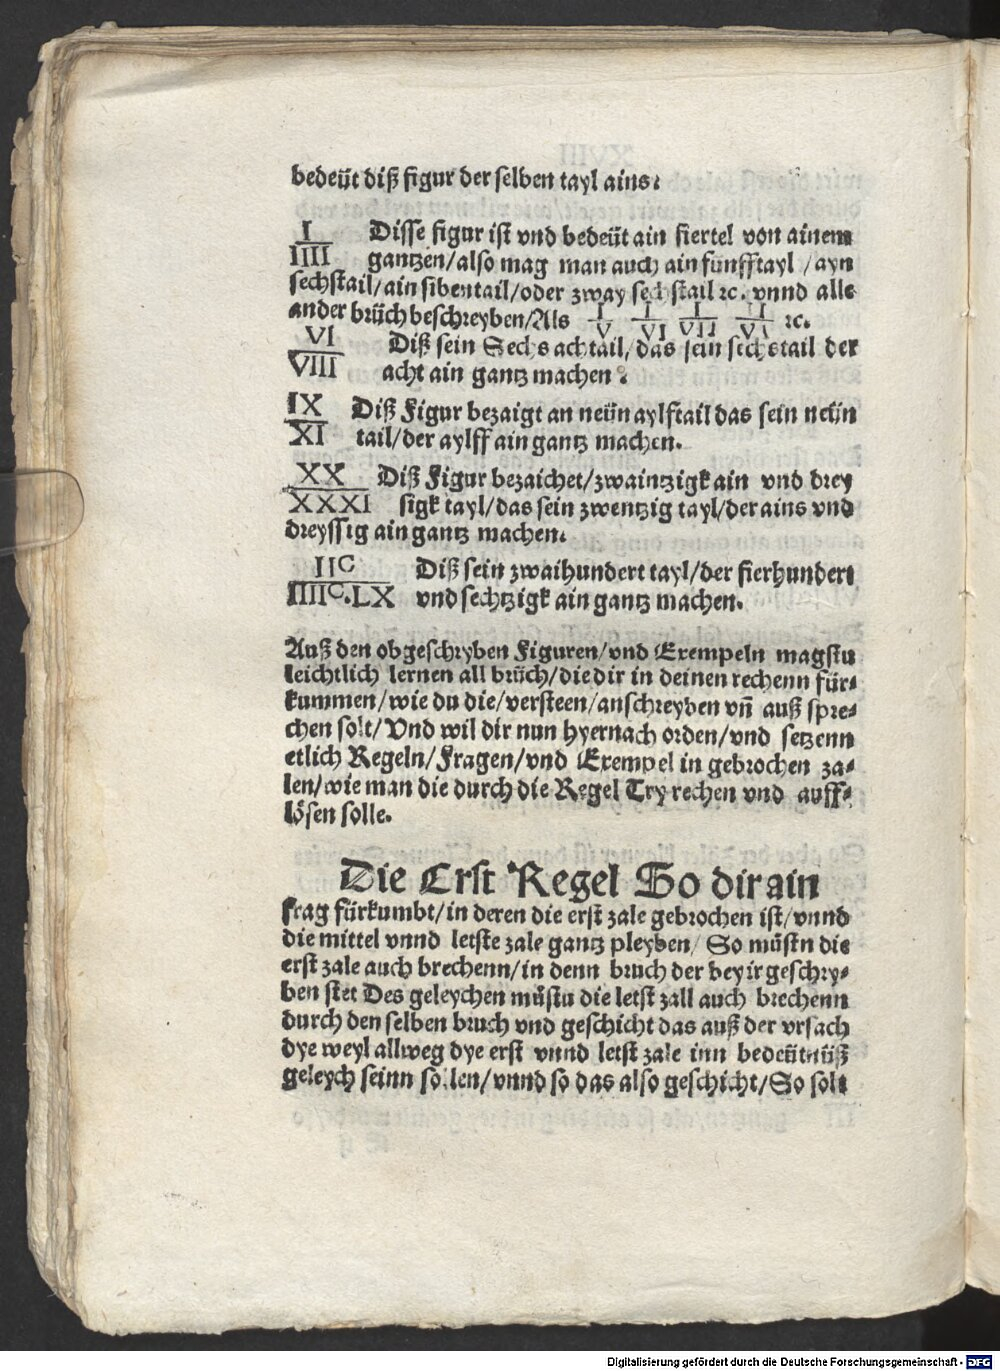 bedeüt diß figur der selben tayl ains.
I Disse figur ist vnd bedeüt ain fiertel von ainem
IIII gantzen/also mag man auch ain fünfftayl /ayn
sechstail/ain sibentail/oder zway sechstail ꝛc. vnnd alle
ander brüch beschreyben/Als I/V I/VI I/VII ꝛc.
VI Diß sein Sechs achtail/das sein sechstail der
VIII acht ain gantz machen.
IX Diß Figur bezaigt an neün aylftail das sein neün
XI tail/der aylff ain gantz machen.
XX Diß Figur bezaichet/zwaintzigk ain vnd drey
XXXI sigk tayl/das sein zwentzig tayl/der ains vnd
dreyssig ain gantz machen.
IIC Diß sein zwaihundert tayl/der fierhundert
IIIIC.LX vnd sechtzigk ain gantz machen.
Auß den obgeschryben Figuren/vnd Exempeln magstu
leichtlich lernen all brüch/die dir in deinen rechenn für⸗
kummen/wie du die/versteen/anschreyben vñ auß spre⸗
chen solt/Vnd wil dir nun hyernach orden/vnd setzenn
etlich Regeln/Fragen/vnd Exempel in gebrochen za⸗
len/wie man die durch die Regel Try rechen vnd auff⸗
lösen solle.
Die Erst Regel So dir ain
frag fürkumbt/in deren die erst zale gebrochen ist/vnnd
die mittel vnnd letste zale gantz pleyben/ So müstn die
erst zale auch brechenn/in denn bruch der bey ir geschry⸗
ben stet Des geleychen müstu die letst zall auch brechenn
durch den selben bruch vnd geschicht das auß der vrsach
dye weyl allweg dye erst vnnd letst zale inn bedeütnüß
geleych seinn sollen/vnnd so das also geschicht/So solt
Digitalisierung gefördert durch die Deutsche Forschungsgemeinschaft - DFG